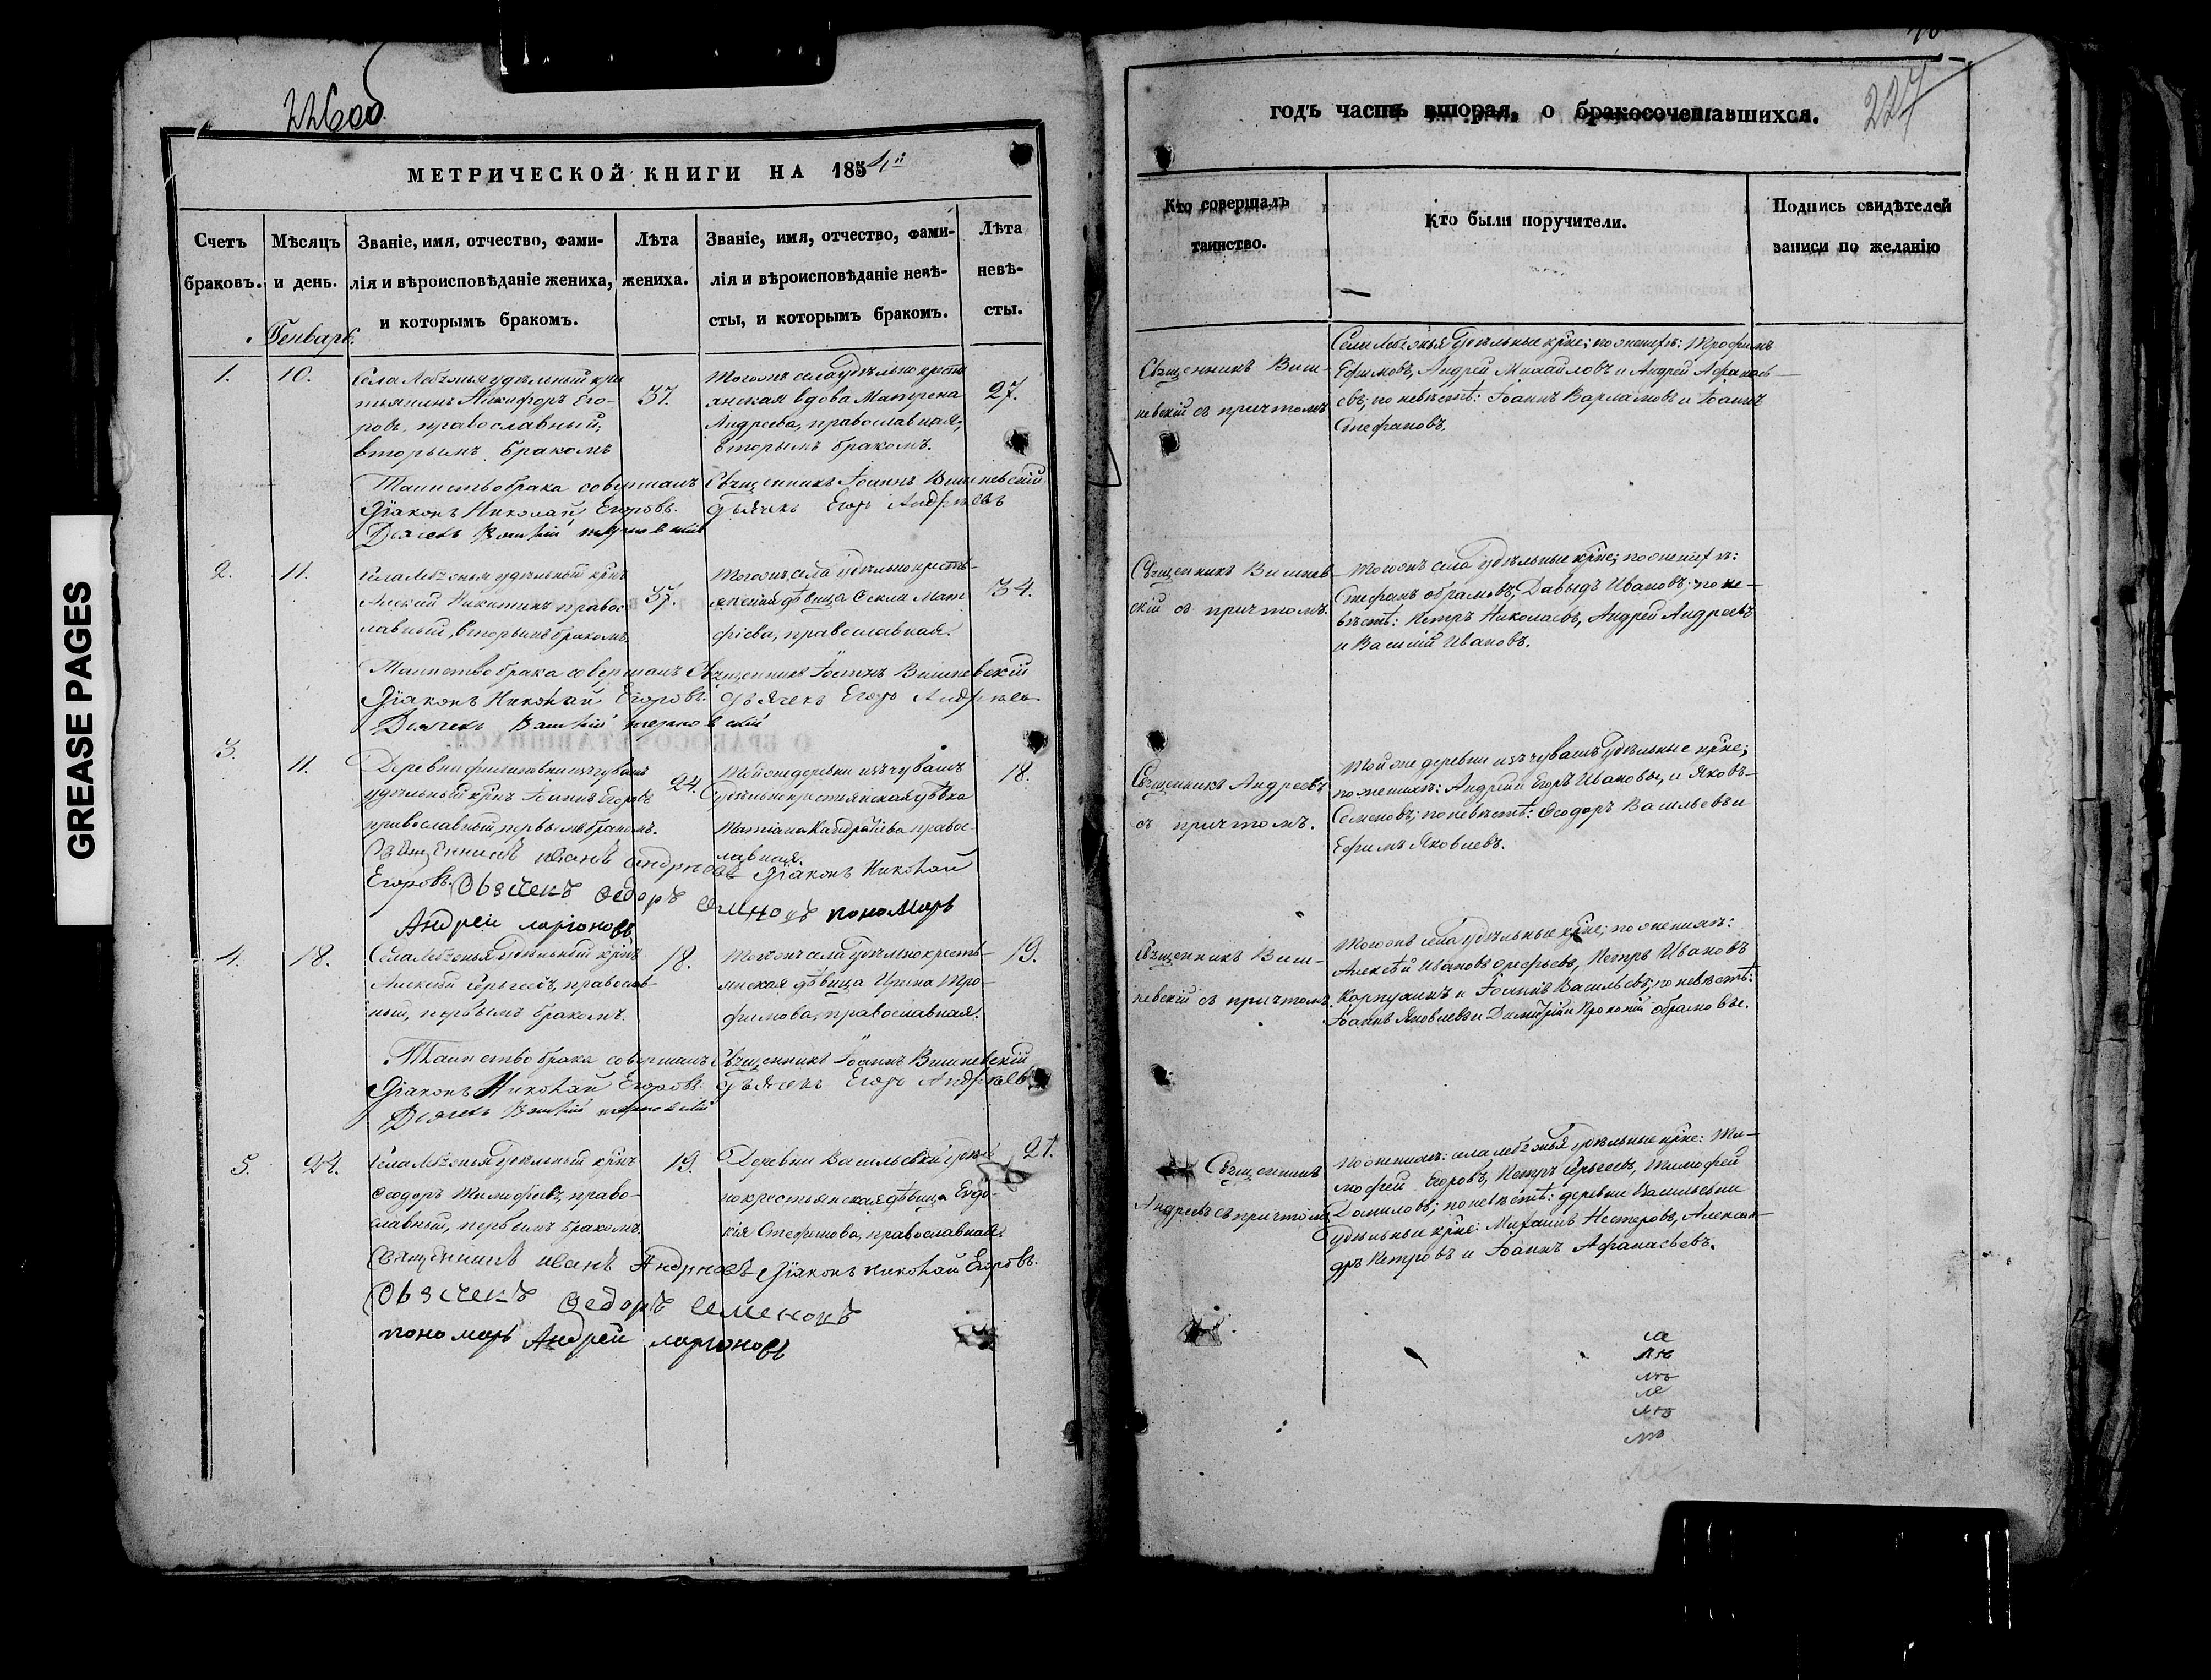 226об
МЕТРИЧЕСКОЙ КНИГИ НА 1854й
Счетъ
браковъ.
Мѣсяцъ
и день.
Званіе, имя, отчество, фами-
лія и вѣроисповѣданіе жениха,
и которымъ бракомъ.
Лѣта
жениха.
Званіе, имя, отчество, фами-
лія и вѣроисповѣданіе невѣ-
сты, и которымъ бракомъ.
Лѣта
невѣ-
сты.
Генварь.
1.
10.
Села Лебежья удѣльный кре
стьянинъ Никифоръ Его-
ровъ, православный,
вторымъ бракомъ
37.
Тогожъ села удѣльно крестья
янская вдова Матрена
Андреева, православная,
вторымъ бракомъ.
27.
Таинство брака совершалъ Священникъ Іоаннъ Вишневскій
Діаконъ Николай Егоровъ. Дьячекъ Егоръ Андреевъ
Дьячекъ
2.
11.
Села Лебежья удѣльный крнъ
Алексій Никитинъ правос
лавный, вторымъ бракомъ.
37.
Тогожъ села удѣльно кресть-
янская дѣвица Фекла Мат
фіева, православная.
34.
Таинство брака совершалъ Священникъ Іоаннъ Вишневскій
Діаконъ Николай Егоровъ. Дьячекъ Егоръ Андреевъ
Дьячекъ
3.
11.
Деревни Филиповки изъ чувашъ
удѣльный крнъ Іоаннъ Егоровъ
православный, первымъ бракомъ.
24.
Той же деревни изъ чувашъ
удѣльно крестьянская дѣвка
Татіана Кандратіева правос-
лавная.
18.
Священникъ Иванъ Андреевъ Діаконъ Николай
Егоровъ. Дьячекъ Федоръ Семеновъ пономарь
Андрей Ларіоновъ
4.
18.
Села Лебежья удѣльный крнъ
Алексѣй Сергеевъ, православ-
ный, первымъ бракомъ.
18.
Тогожъ села удѣльно кресть-
янская дѣвица Ирина Тро-
фимова, православная.
19.
Таинство брака совершалъ Священникъ Іоаннъ Вишневскій
Діаконъ Николай Егоровъ. Дьячекъ Егоръ Андреевъ
Дьячекъ
5.
24.
Села Лебежья удѣльный крнъ
Феодоръ Тимофѣевъ, право-
славный, первымъ бракомъ.
19.
Деревни Васильевки удѣль
но крестьянская дѣвица Евдо-
кія Стефанова, православная.
21.
Священникъ Иванъ Андреевъ Діаконъ Николай Егоровъ.
Дьячекъ Федоръ Семеновъ
пономарь Андрей Ларіоновъ
227
годъ часть вторая, о бракосочетавшихся.
Кто совершалъ
таинство.
Кто были поручители.
Подпись свидѣтелей
записи по желанію
Священникъ Виш-
невскій съ причтомъ
Села Лебежья удѣльные крне; по женихѣ: Трофимъ
Ефимовъ, Андрей Михайловъ и Андрей Афанась-
евъ; по невѣстѣ: Іоаннъ Варламовъ и Іоаннъ
Стефановъ.
Священникъ Вишнев-
скій съ причтомъ.
Тогожъ села удѣльные крне; по женихѣ:
Стефанъ Абрамовъ, Давыдъ Ивановъ; по не-
вѣстѣ: Петръ Николаевъ, Андрей Андреевъ
и Василій Ивановъ.
Священникъ Андреевъ
съ причтомъ.
Той же деревни изъ чувашъ удѣльные крне;
по женихѣ: Андрей Егоръ Ивановы, и Яковъ
Семеновъ; по невѣстѣ: Феодоръ Васильевъ и
Ефимъ Яковлевъ.
Священникъ Виш-
невскій съ причтомъ.
Тогожъ села удѣльные крне; по женихѣ:
Алексѣй Ивановъ Арефьевъ, Петръ Ивановъ
Карпухинъ и Іоаннъ Васильевъ; по невѣстѣ:
Іоаннъ Яковлевъ и Димитрій и Прокопій Абрамовы.
Священникъ
Андреевъ съ причтомъ
По женихѣ: села Лебежья удѣльные крне: Ти-
мофей Егоровъ, Петръ Сергеевъ, Тимофей
Даниловъ; по невѣстѣ: деревни Васильевки
удѣльные крне: Михаилъ Нестеровъ, Алексан-
дръ Петровъ и Іоаннъ Афанасьевъ.
GREASE PAGES